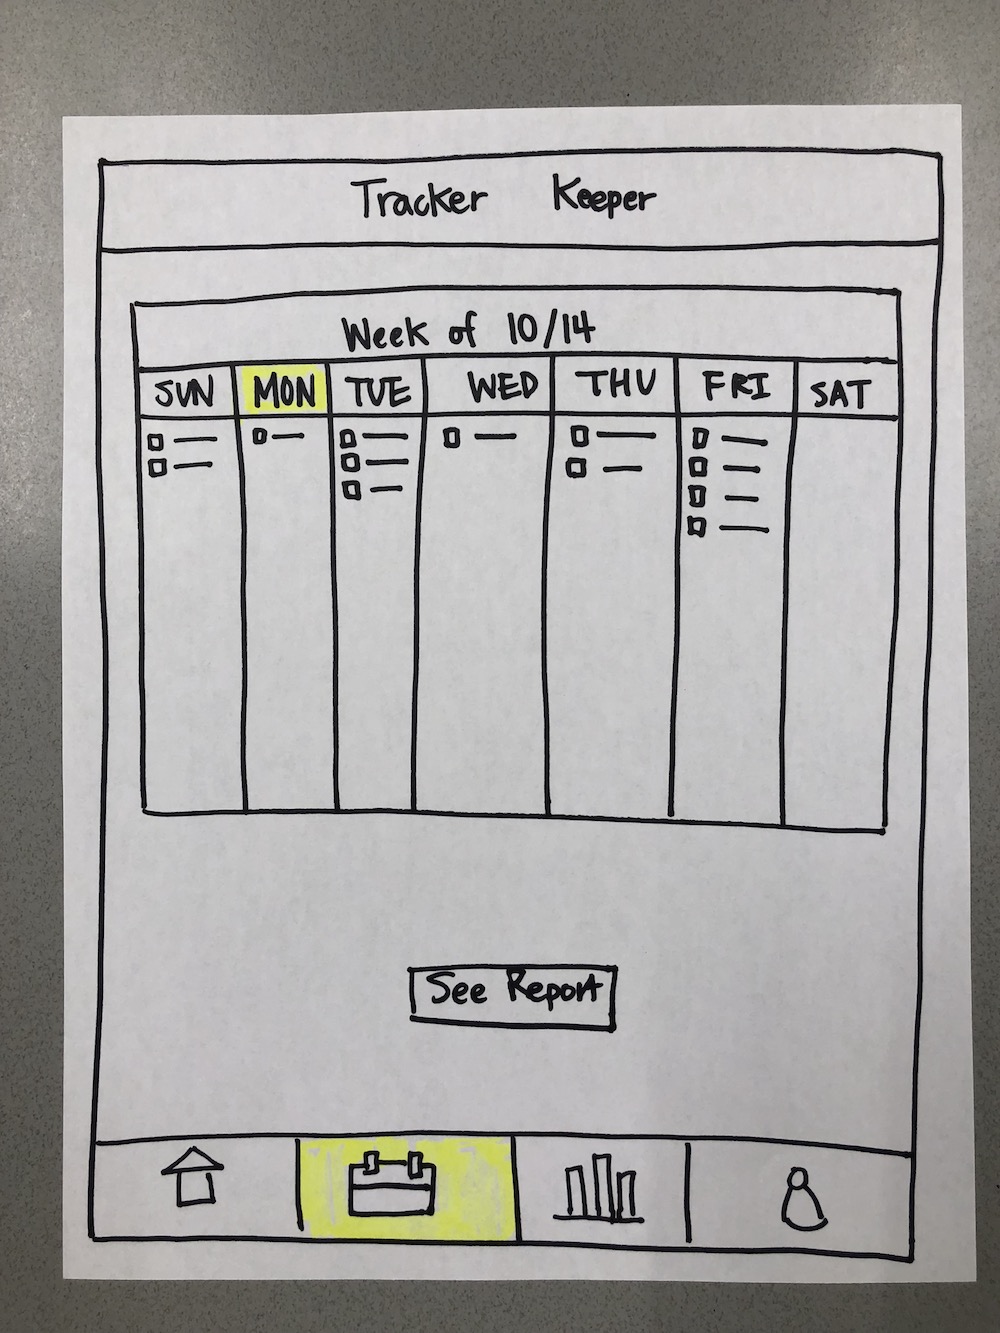 Tracker Keeper
Week of 10/14
SUN MON TUE WED THU FRI SAT
See Report